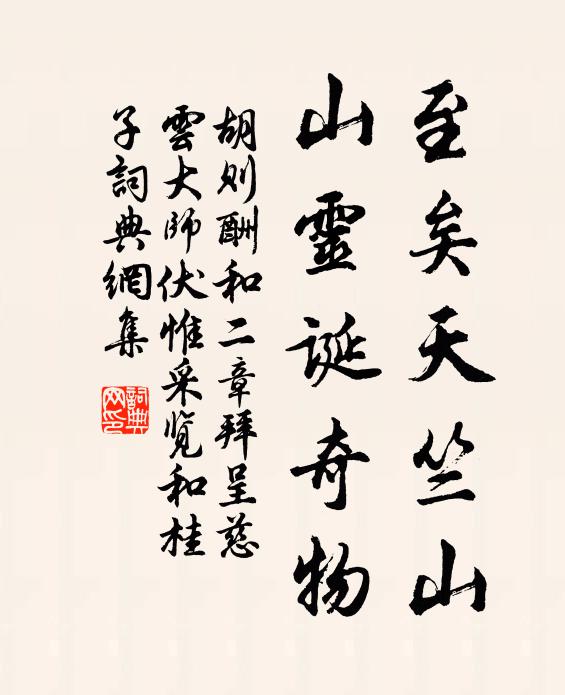 至矣天竺山
山靈誕奇物
胡则酬和二章拜呈慈
雲大师伏惟采览和桂
子詞典網集
詞典
网印